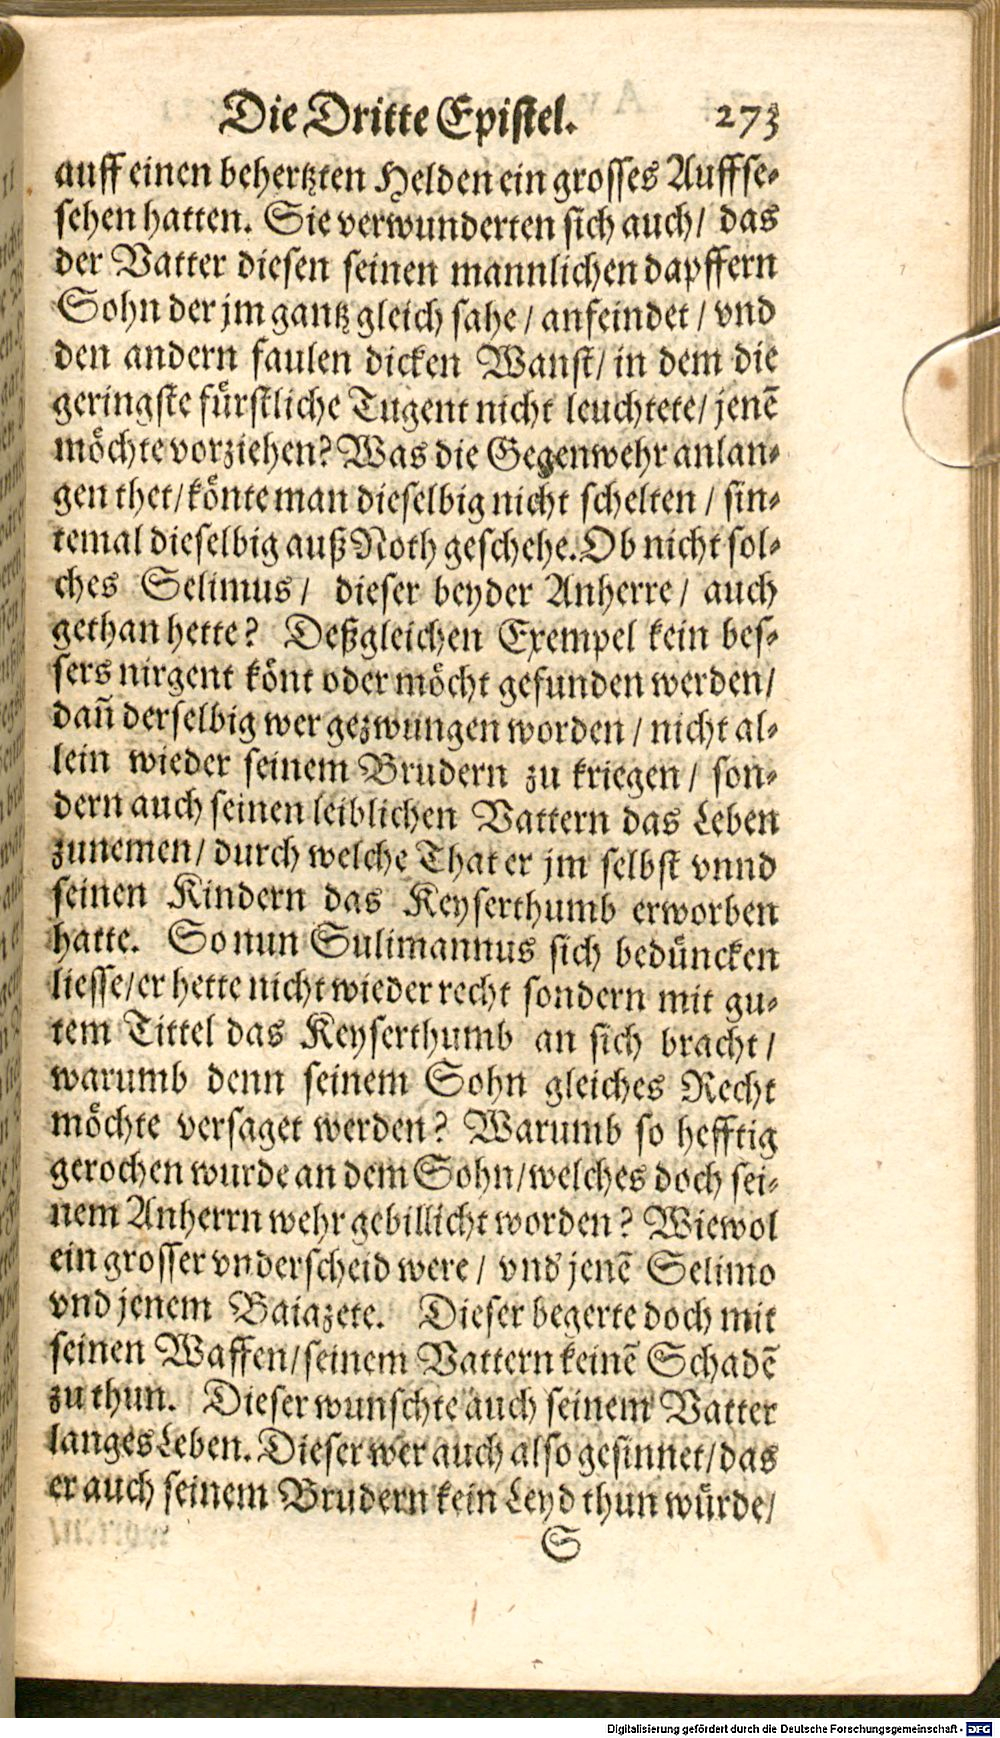 Die Dritte Epistel. 273
auff einen behertzten Helden ein grosses Auffse-
sehen hatten. Sie verwunderten sich auch/ das
der Vatter diesen seinen mannlichen dapffern
Sohn der jm gantz gleich sahe/ anfeindet/ vnd
den andern faulen dicken Wanst/ in dem die
geringste fürstliche Tugent nicht leuchtete/ jenē
möchte vorziehen? Was die Gegenwehr anlan-
gen thet/ könte man dieselbig nicht schelten/ sin-
temal dieselbig auß Noth geschehe. Ob nicht sol-
ches Selimus/ dieser beyder Anherre/ auch
gethan hette? Deßgleichen Exempel kein bes-
sers nirgent könt oder möcht gefunden werden/
dañ derselbig wer gezwungen worden/ nicht al-
lein wieder seinem Brudern zu kriegen/ son-
dern auch seinen leiblichen Vattern das Leben
zunemen/ durch welche That er jm selbst vnnd
seinen Kindern das Keyserthumb erworben
hatte. So nun Sulimannus sich bedüncken
liesse/ er hette nicht wieder recht sondern mit gu-
tem Tittel das Keyserthumb an sich bracht/
warumb denn seinem Sohn gleiches Recht
möchte versaget werden? Warumb so hefftig
gerochen wurde an dem Sohn/ welches doch sei-
nem Anherrn wehr gebillicht worden? Wiewol
ein grosser vnderscheid were/ vnd jenē Selimo
vnd jenem Baiazete. Dieser begerte doch mit
seinen Waffen/ seinem Vattern keinē Schadē
zu thun. Dieser wunschte auch seinem Vatter
langes Leben. Dieser wer auch also gesinnet/ das
er auch seinem Brudern kein Leyd thun würde/
S
Digitalisierung gefördert durch die Deutsche Forschungsgemeinschaft - DFG